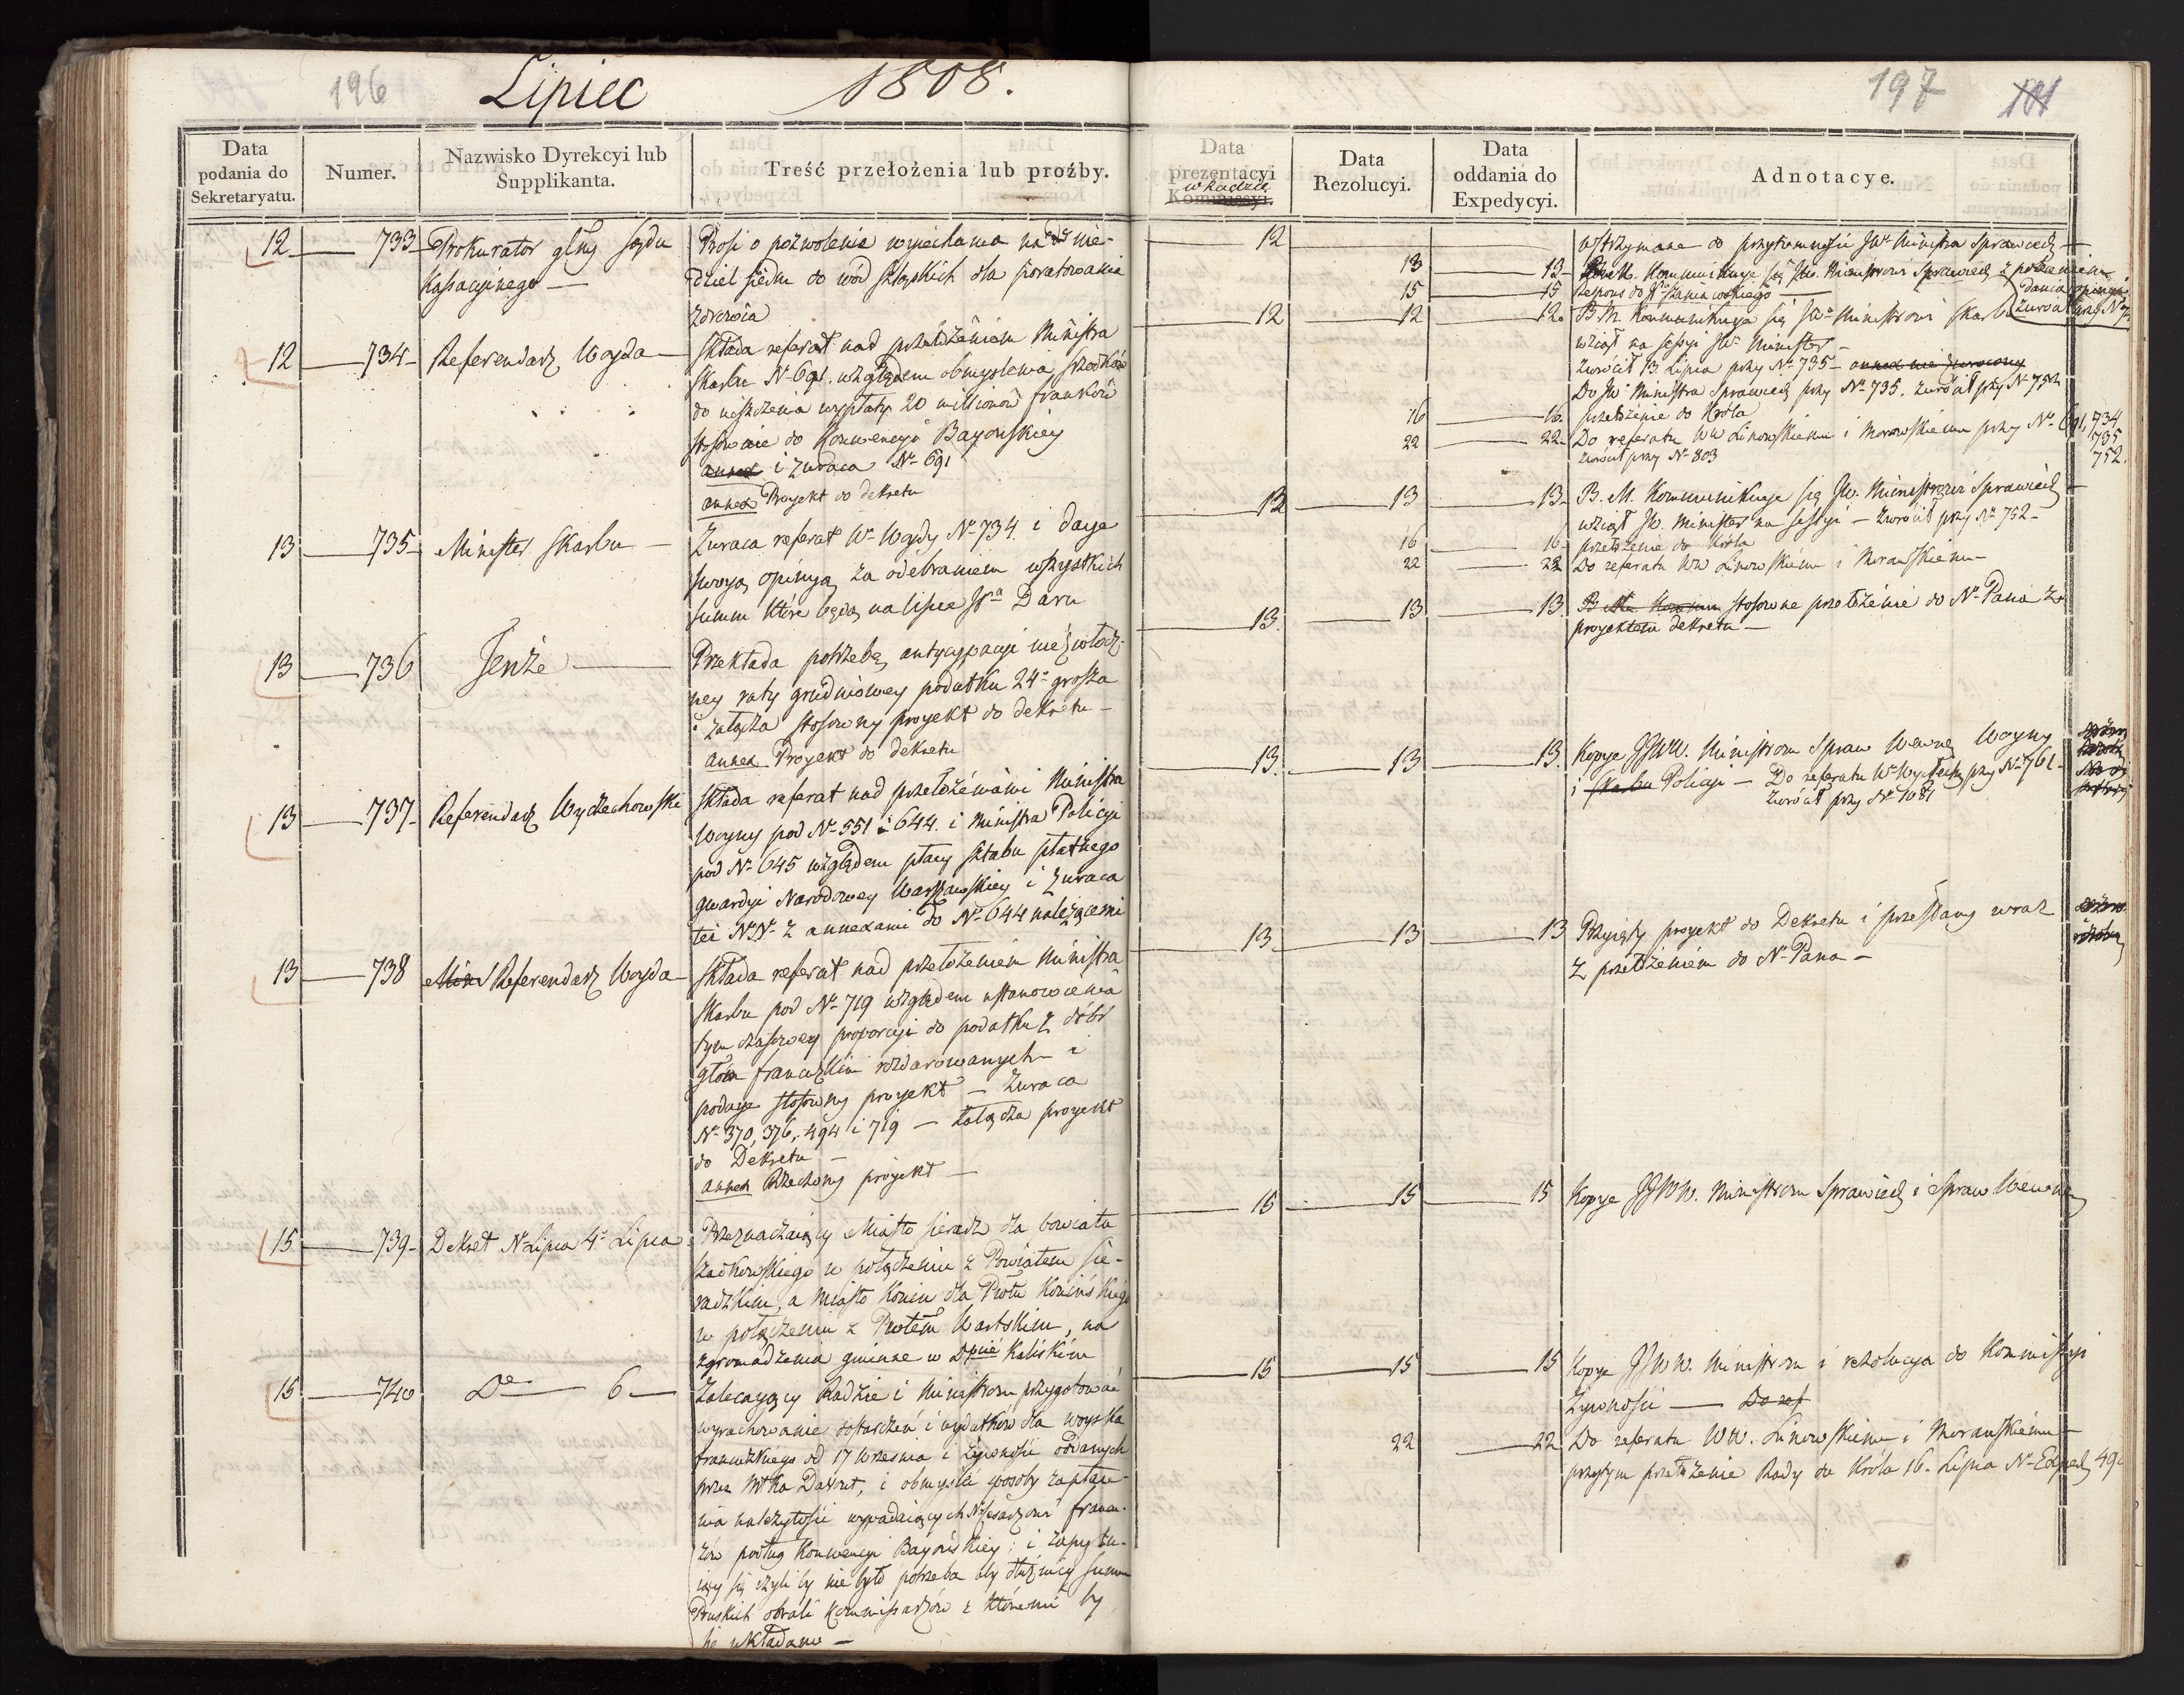 196
Lipiec 1808.
Data podania do Sekretaryatu.
Numer.
Nazwisko Dyrekcyi lub Supplikanta.
Treść przełożenia lub proźby.
12 733 Prokurator głny sądu
Kassacyinego
Prosi o pozwolenie wyiechania na nie-
dziel siedm do wód szląskich dla poratowania
zdrowia
12 734 Referendarz Woyda
Składa referat nad przełożeniem Ministra
Skarbu N. 691. względem obmyslenia srzodków
do uiszczenia wypłaty 20 millionów franków
stosownie do Konwencyi Bayońskiey
annex i zwraca No 691
annex Proyekt do dekretu
13 735 Minister Skarbu
Zwraca referat Wo Woydy No 734. i daye
swoyą opinyą za odebraniem wszystkich
summ które będą na lipiec JPa Daru
13 736 Tenże
Przekłada potrzebę antycypacyi niezwłocz-
ney raty grudniowey podatku 24o grosza
i załącza stosowny proyekt do dekretu
annex Proyekt do dekretu
13 737 Referendarz Wyczechowski
Składa referat nad przełożeniami Ministra
Woyny pod No 551 i 644. i Ministra Policyi
pod No 645 względem płacy sztabu płatnego
gwardyi Narodowey Warszawskiey i zwraca
też NNo z annexami do No 644 należącemi
13 738 Referendarz Woyda
Składa referat nad przełożeniem Ministra
Skarbu pod No 719 względem ustanowienia
tymczasowey proporcyi do podatku z dóbr
francuzkim rozdarowanych i
podaye stosowny proyekt — Zwraca
No 370, 376, 494 i 719 — załącza proyekt
do Dekretu —
annex Rzeczony proyekt —
15 739 Dekret N. 4o Lipca
Przeznaczaiący Miasto Sieradz dla Powiatu
Szadkowskiego w połączeniu z Powiatem Sie-
radzkim, a Miasto Konin dla Pwtu Konińskiego
w połączeniu z Pwtem Wartskim, na
zgromadzenia gminne w Dpcie Kaliskim
15 740 Do 6
Zalecayący Radzie i Ministrom przygotować
wyrachowanie dostarczeń i wydatków dla woyska
francuzkiego od 17 Wrzesnia i żywności oddanych
przez Mrka Davout, i obmyślić sposoby zapłace-
nia należytości wypadaiących Skarbowi francu-
zów podług Konwencyi Bayońskiey; i zapytu-
iący się czyli by nie było potrzeba aby dłużnicy summ
Pruskich obrali Kommissarzów z któremi by
się układano —
197
Data prezentacyi w Radzie Kommissyi.
Data Rezolucyi.
Data oddania do Expedycyi.
Adnotacye.
12 wstrzymane do przytomności JWo Ministra Sprawiedl.
13 13 Kommunikuje się JW. Ministrowi Sprawiedl. z poleceniem
dania opinyi
15 15 Respons do
12 12 12. B. M. Kommunikuje się JWo Ministrowi Skarbu
wziął na sessyi JWo Minister —
zwrócił 13 Lipca przy No 735 — annex nie zwrócony
Do JWo Ministra Sprawiedl. przy No 735. zwrócił przy No 752
16 16. przełożenie do Króla
22 22. Do referatu WW Linowskiemu i Morawskiemu przy No 691, 734
735
752.
zwrócił przy No 803
12 13 13. B. M. Kommunikuje się JW. Ministrowi Sprawiedl.
wziął JW. Minister na sessyi — zwrócił przy No 752
16 16 przełożenie do Króla
22 22 Do referatu WW Linowskiemu i Morawskiemu
13. 13 13 stosowne przełożenie do No Pana z
proyektem dekretu —
13. 13 13. Kopye JJWW. Ministrom Spraw Wewnę. Woyny
i Skarbu Policyi — Do referatu Wo Wyczech. przy No 761
zwrócił przy No 1081
13 13 13 Przyięty proyekt do Dekretu i przesłany wraz
z przełożeniem do No Pana —
15 15 15 Kopye JJWW. Ministrom Sprawiedl. i Spraw Wewnę
15 15 15 Kopye JJWW. Ministrom i rezolucya do Kommissyi
żywności — Do ref
22 22 Do referatu WW. Linowskiemu i Morawskiemu —
przytym przełożenie Rady do Króla 16. Lipca No Exped. 490